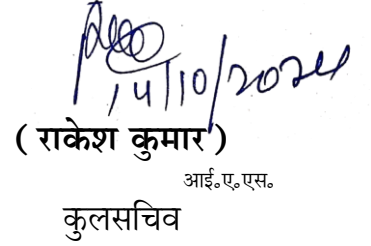 14/10/2024
( राकेश कुमार )
आई॰ए॰एस॰
कुलसचिव